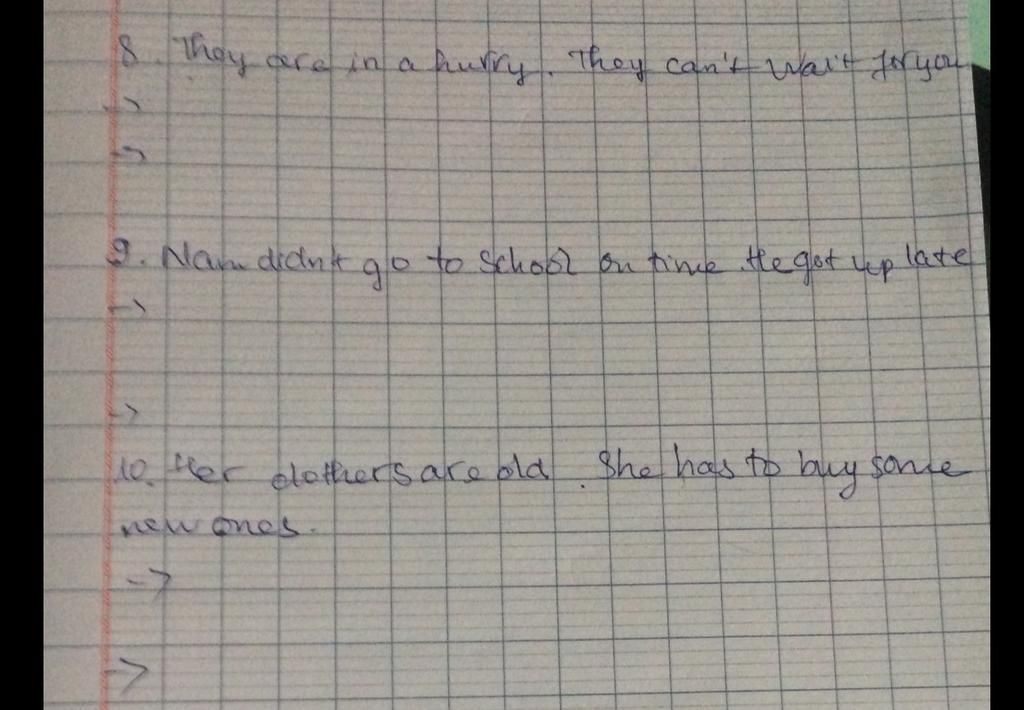 8. They are in a hurry. They can't wait for you
->
->
9. Nam didn't go to school on time. He got up late
->
->
10. Her clothers are old. She has to buy some
new ones.
->
->